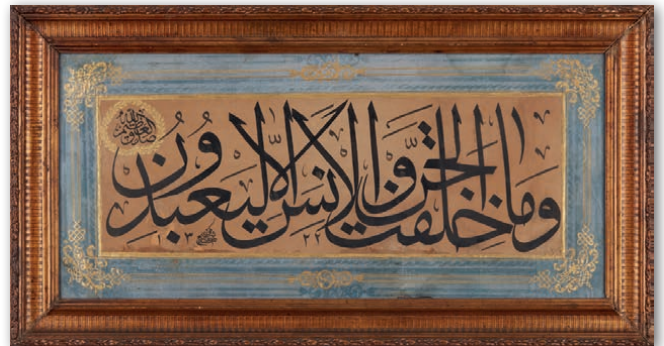 وما خلقت الجن والانس الا ليعبدون
صدق الله العظيم
١٣٢٢